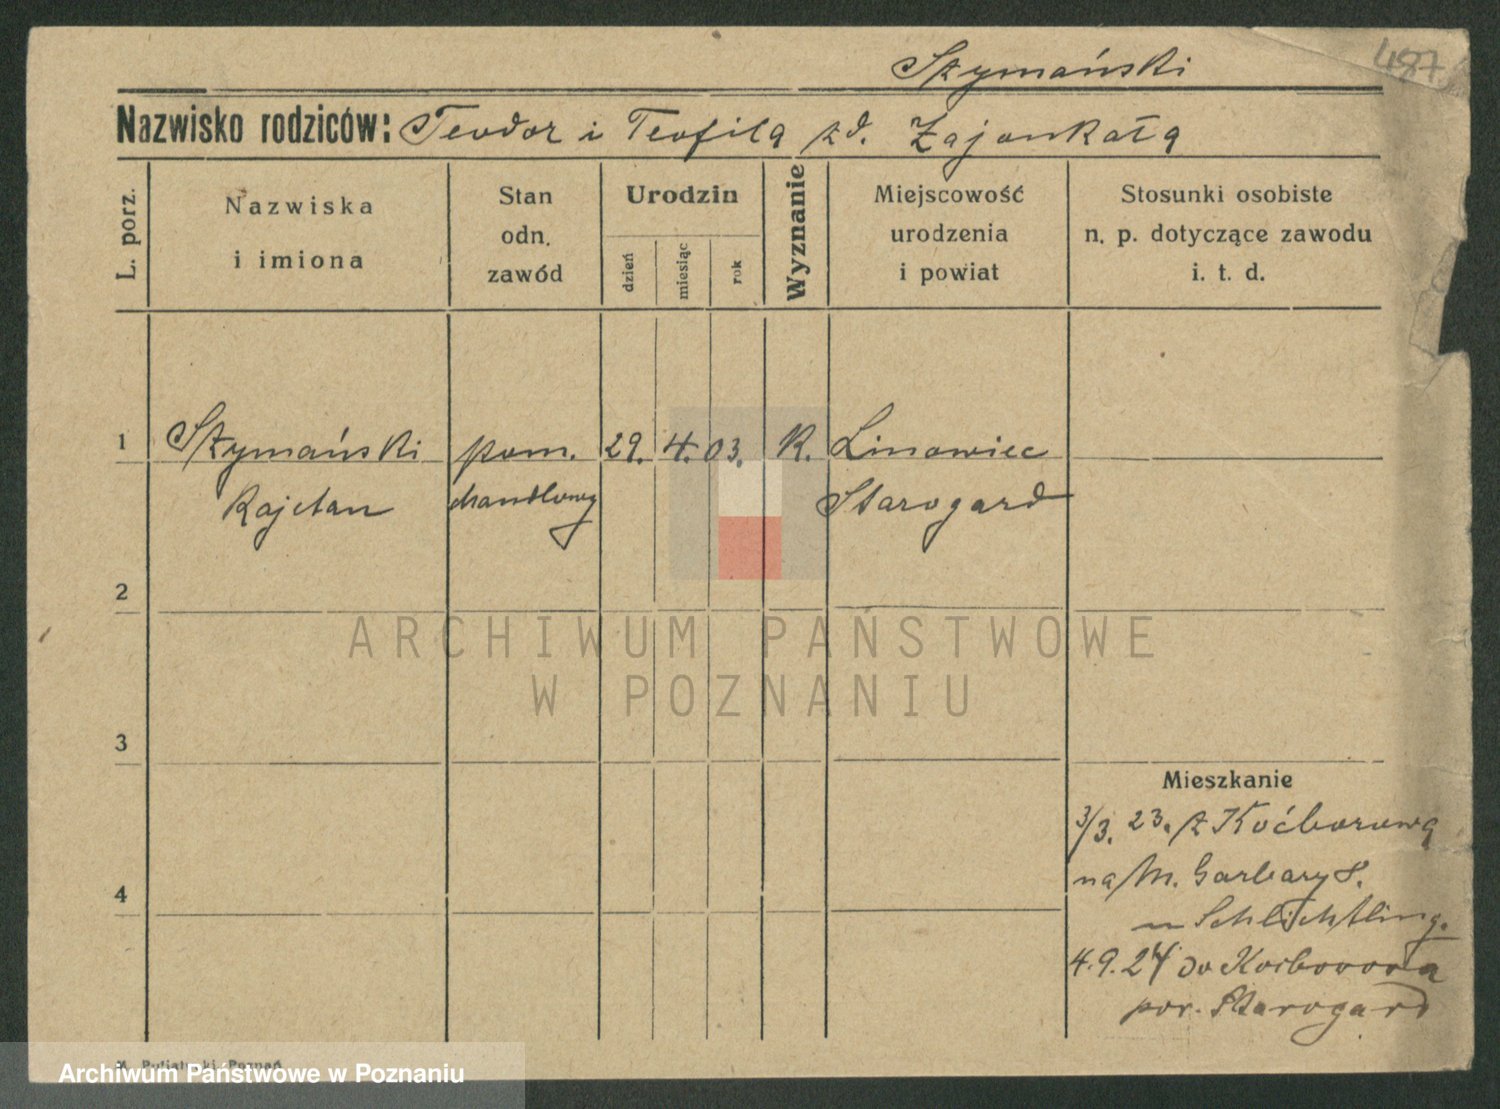 487
Szymański
Nazwisko rodziców: Teodor i Teofila zd. Zajonkała
L. porz.
Nazwiska
i imiona
Stan
odn.
zawód
Urodzin
dzień
miesiąc
rok
Wyznanie
Miejscowość
urodzenia
i powiat
Stosunki osobiste
n. p. dotyczące zawodu
i. t. d.
1 Szymański pom. 29. 4. 03. K. Linowiec
Kajetan handlowy Starogard
2
ARCHIWUM PAŃSTWOWE
W POZNANIU
3
Mieszkanie
3/3. 23. z Koćborowa
na M. Garbary 8.
u Schlichtling.
4
4.9.24 do Kocborowa
pow. Starogard
Poznań
Archiwum Państwowe w Poznaniu